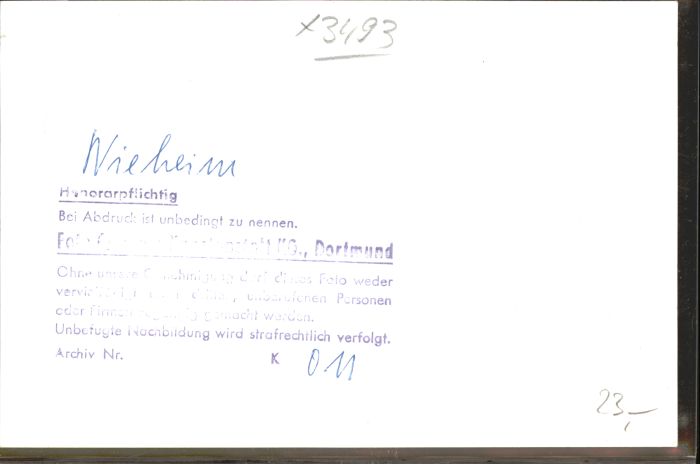 x3493
Nieheim
Honorarpflichtig
Bei Abdruck ist unbedingt zu nennen.
KG., Dortmund
Ohne unsere Genehmigung darf dieses Foto weder
unberufenen Personen
oder Firmen gemacht werden.
Unbefugte Nachbildung wird strafrechtlich verfolgt.
Archiv Nr. K 011
23,-